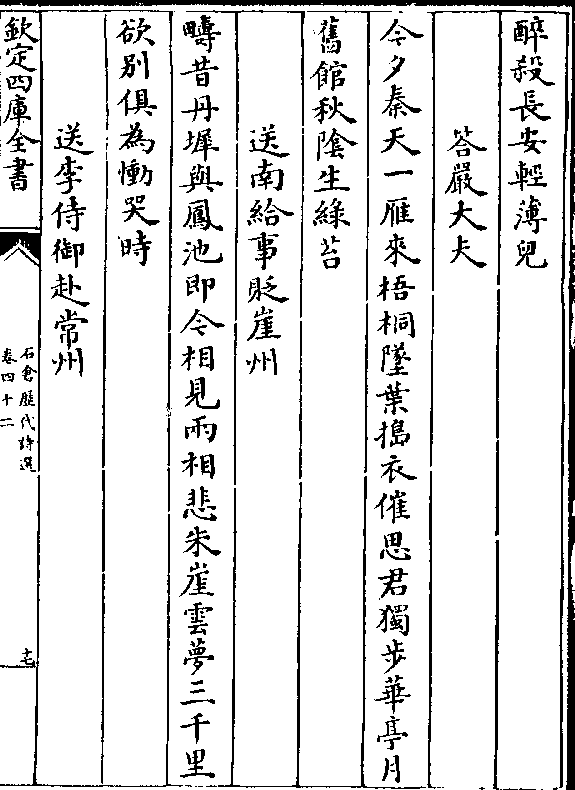 醉殺長安輕薄兒
答嚴大夫
今夕秦天一雁來梧桐墜葉搗衣催思君獨步華亭月
舊館秋陰生綠苔
送南給事貶崖州
疇昔丹墀與鳳池即今相見兩相悲朱崖雲夢三千里
欲別俱為慟哭時
送李侍御赴常州
欽定四庫全書
石倉歷代詩選
卷四十二
十七